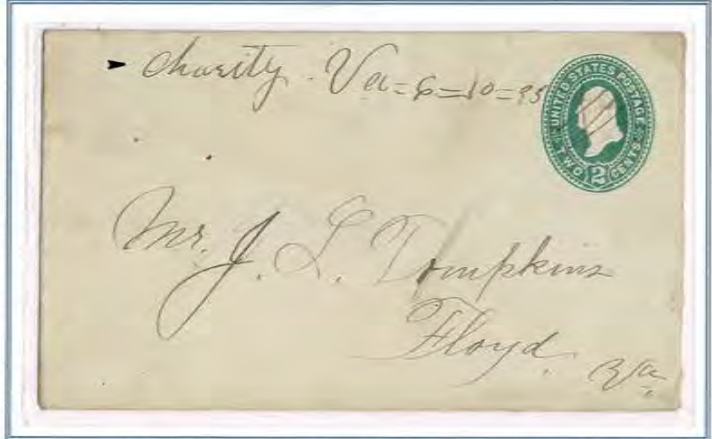 Charity. Va=6=10=95
UNITED STATES POSTAGE
TWO 2 CENTS
Mr. J. L. Tompkins
Floyd.
Va.